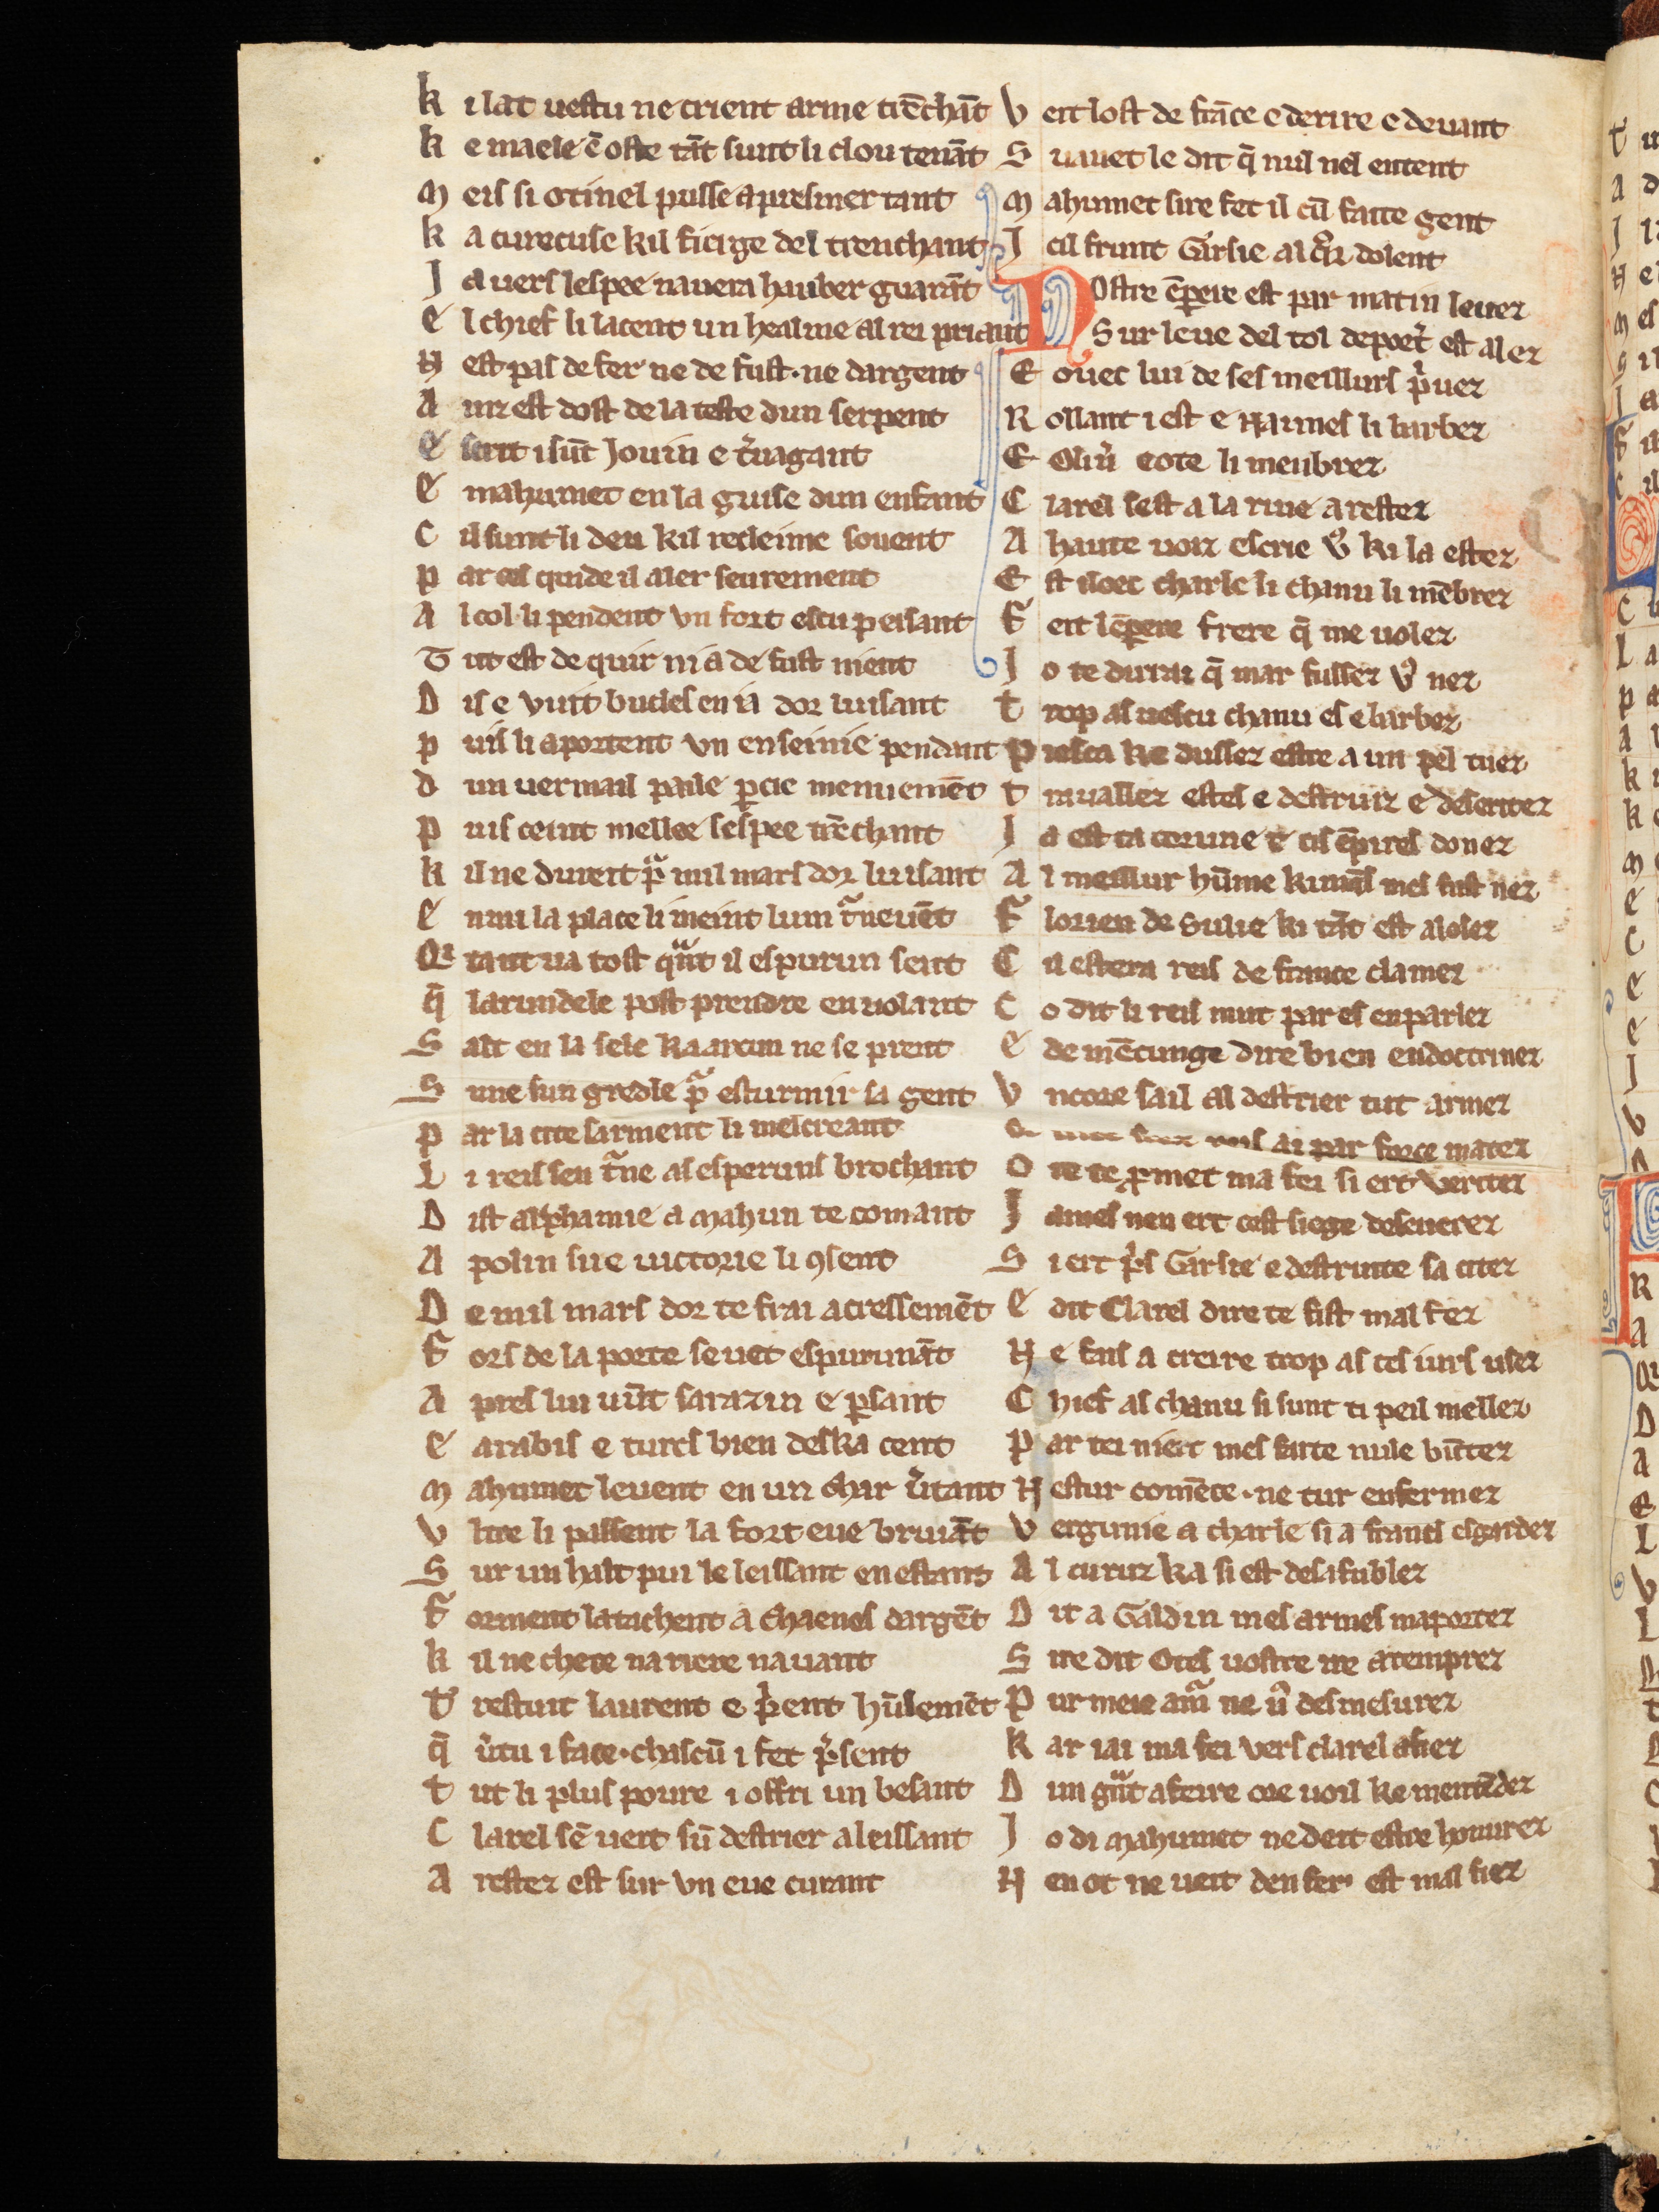 K i lat uestu ne crient arme trēchāt
K e maele ē oste tāt sunt li clou tenāt
M eis si otinel pusse apresmer tant
K a curecuse kil fierge del trenchant
J a uers lespee nauera hauber guarāt
E l chief li lacent un healme al rei priant
N est pas de fer ne de fust · ne dargent
A inz est dost de la teste dun serpent
E scrit i sūt Jouin e t̉uagant
E mahumet en la guise dun enfant
C il sunt li deu kil recleime souent
P ar cel quide il aler seurement
A l col li pendent vn fort escu peisant
T ut est de quir ni a de fust nient
D is e vuit bucles en ia dor luisant
P uis li aportent vn enseinie pendant
d un uermail paile pcie menuemēt
P uis ceint mellee sespee trēchant
K il ne durreit p̉ mil mars dor luisant
E nmi la place li meint lum t̉neuēt
Q̉ tant ua tost quāt il espurun sent
q̄ larundele post prendre en uolant
S alt en la sele ka arcun ne se prent
S une sun gredle p̉ esturmir sa gent
P ar la cite sarment li mescreant
L i reis sen t̉ne as esperuns brochant
D ist alphamie a Mahun te comant
A polin sire uictorie li ꝯsent
D e mil mars dor te frai acressemēt
F ors de la porte se uet espurunāt
A pres lui uūt sarazin e psant
E arabis e turcs bien deska cent
M ahumet leuent en un char ůtant
V ltre li passent la fort eue bruiāt
S ur un halt pui le leissant en estant
F orment latachent a chaenes dargēt
K il ne chece nariere nauant
T restuit laurent e p̉ent hūlemēt
q̄ ůtu i face · chascū i fet p̉sent
T ut li plus poure i offri un besant
C larel sē ueit sū destrier aleissant
A restez est sur vn eue curant
V eit lost de frāce e derire e deuant
S uauet le dit q̄ nul nel entent
M ahumet sire fet il cū faite gent
J cil frunt Garsie al q̉r dolent
N ostre ēpere est par matin leuez
Sur leue del tol deport̉ est alez
E ouec lui de ses meillurs p̉uez
R ollant i est e Naimes li barbez
E Oliu̓ eote li menbrez
C larel sest a la riue arestez
A haute uoiz escrie v̓ ki la estez
E st iloec charle li chanu li mēbrez
F eit lēpere frere q̄ me uolez
J o te dirrai q̄ mar fussez v̓ nez
T rop as uescu chanu es e barbez
P iesca ke dussez estre a un pel tuez
T rauallez estes e destruiz e deseritez
J a est ta corune e tis ēpires donez
A l meillur hūme ki unq̄s mes fust nez
F lorien de Sulie ki tāt est alosez
C il estera reis de france clamez
C o dit li reis mut par es enparlez
E de mēcunge dire bien endoctrinez
V ncore sail al destrier tut armez
reis ai par force matez
O re te ꝓmet ma fei si ert veritez
J ames nen ert cest siege deseuerez
S i ert p̉s Garsie e destruite sa citez
E dit Clarel dire te fist malfez
N e fais a creire trop as tes iurs usez
C hief as chanu si sunt ti peil mellez
P ar tei niert mes faite nule būtez
N estur comēce · ne tur enfermez
V ergunie a charle si a francs esgardez
A l curuz ka si est desafublez
D it a Galdin mes armes maportez
S ire dit Otes uostre ire atemprez
P ur meie am̉ ne u̓ desmesurez
K ar iai ma fei vers clarel afiez
D un grāt afeire ore uoil ke mentēdez
J o di Mahumet ne deit estre honurez
N en ot ne ueit den fer est mal fiez